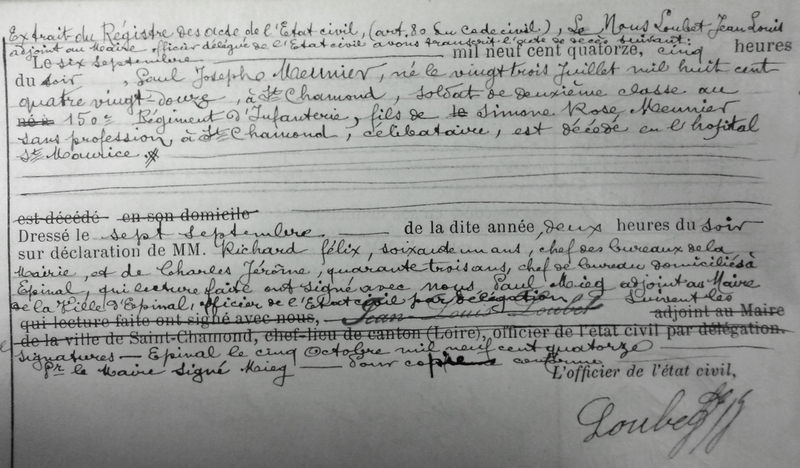 Extrait du Régistre des acte de l'Etat civil, (art, 80 du Code civil), Le Nous Loubet Jean Louis
adjoint au Maire officier délégué de l'Etat civil avons transcrit l'acte de décès suivant:
Le six septembre mil neuf cent quatorze, cinq heures
du soir, Paul Joseph Meunier, né le vingt trois Juillet mil huit cent
quatre vingt-douze, à St Chamond, soldat de deuxième classe au
150e Régiment d'Infanterie, fils de Simone Rose Meunier
sans profession à St Chamond, célibataire, est décédé en l'hôpital
St Maurice.
est décédé en son domicile
Dressé le sept septembre de la dite année, deux heures du soir
sur déclaration de MM. Richard félix, soixante un ans, chef des bureaux de la
Mairie, et de Charles Jérôme, quarante trois ans, chef de bureau domiciliés à
Epinal, qui lecture faite ont signé avec nous Paul Mieg adjoint au Maire
de la Ville d'Epinal, officier de l'Etat civil par délégation Suivent les
qui lecture faite ont signé avec nous, Jean Louis Loubet adjoint au Maire
de la ville de Saint-Chamond, chef-lieu de canton (Loire), officier de l'état civil par délégation.
signatures — Epinal le cinq Octobre mil neuf cent quatorze
Pr le Maire Signé Mieg — Pour copie conforme
L'officier de l'état civil,
Loubet